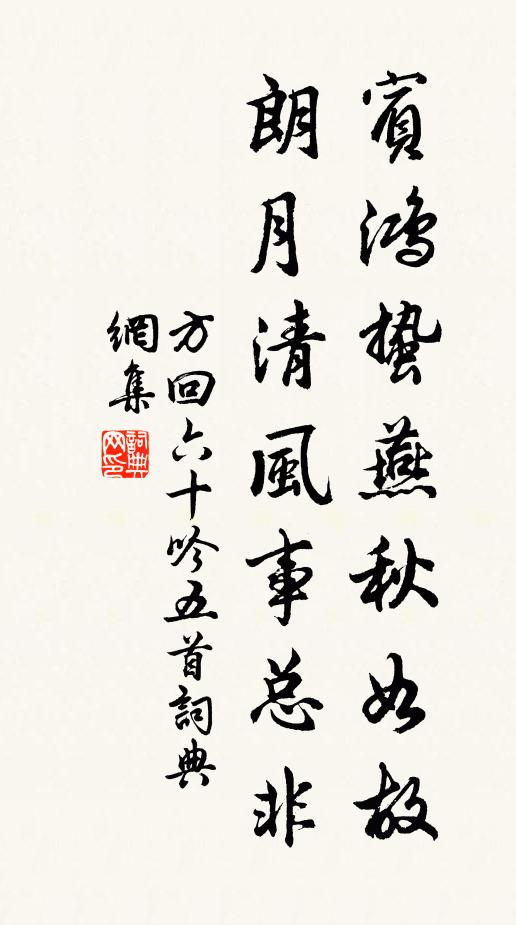 賓鴻蟄燕秋如故
朗月清風事总非
方回六十吟五首詞典
網集
詞典网印